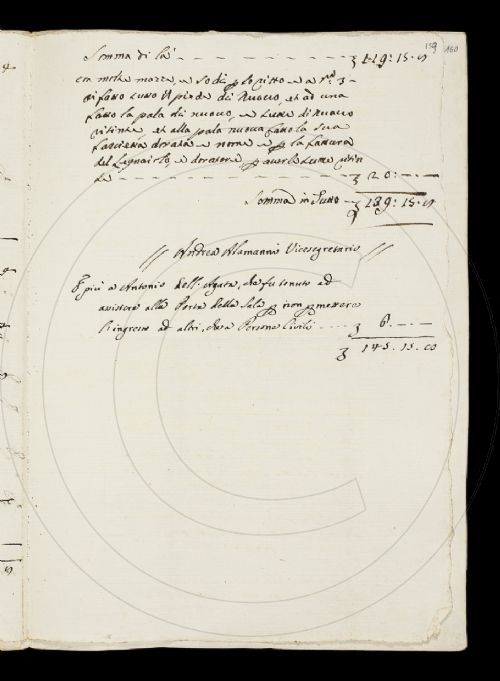 159 160
Somma di là - - - - - 119:15:9
con molta e So di p lo vitto e a
 fatto tutto il piede di nuovo, et ad una
fatto la pala di nuovo, e tutte di nuovo
vitinte, et alla pala nuova fatto la sua
fascietta dorata e nome e p la fattura
del Legnaiolo e doratore p averle tutte vitin
te - - - - - 20:—:—
Somma in Tutto — 139:15:9
// Andrea Alamanni Vicesegretario //
E più a Antonio dell'Agata, che fu tenuto ad
assistere alla Porta della Sala p non pmettere
l'ingresso ad altri, che a Persone Civili .... 6.—.—
145.15.